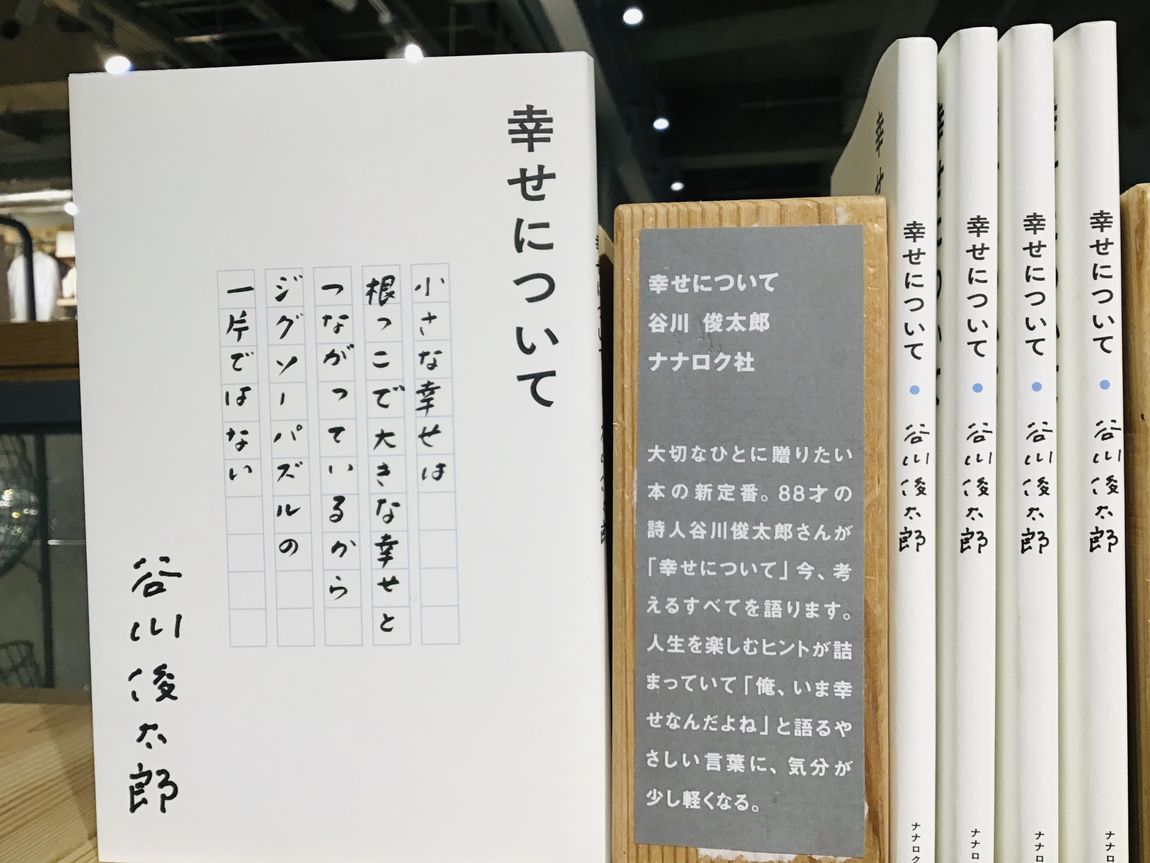 幸せについて
小さな幸せは
根っこで大きな幸せと
つながっているから
ジグソーパズルの
一片ではない
谷川俊太郎
幸せについて
谷川 俊太郎
ナナロク社
大切なひとに贈りたい
本の新定番。88才の
詩人谷川俊太郎さんが
「幸せについて」今、考
えるすべてを語ります。
人生を楽しむヒントが詰
まっていて「俺、いま幸
せなんだよね」と語るや
さしい言葉に、気分が
少し軽くなる。
幸せ
幸せについて 谷川俊太郎 ナナロク
幸せについて 谷川俊太郎 ナナロ
幸せについて 谷川俊太郎 ナナロ
幸せについて 谷川俊太郎 ナナロ